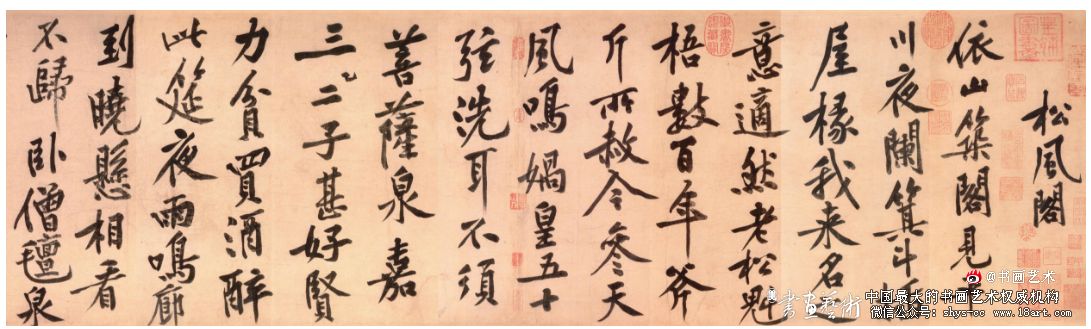 松風閣
依山築閣見
川夜闌箕斗
屋椽我来名之
意適然老松魁
梧數百年斧
斤所赦今參天
風鳴媧皇五十
弦洗耳不須
菩薩泉嘉
三二子甚好賢
力貧買酒醉
此筵夜雨鳴廊
到曉懸相看
不歸卧僧氊泉
@书画艺术
書畫藝術
中国最大的书画艺术权威机构
微信公众号：shys-cc www.18art.com